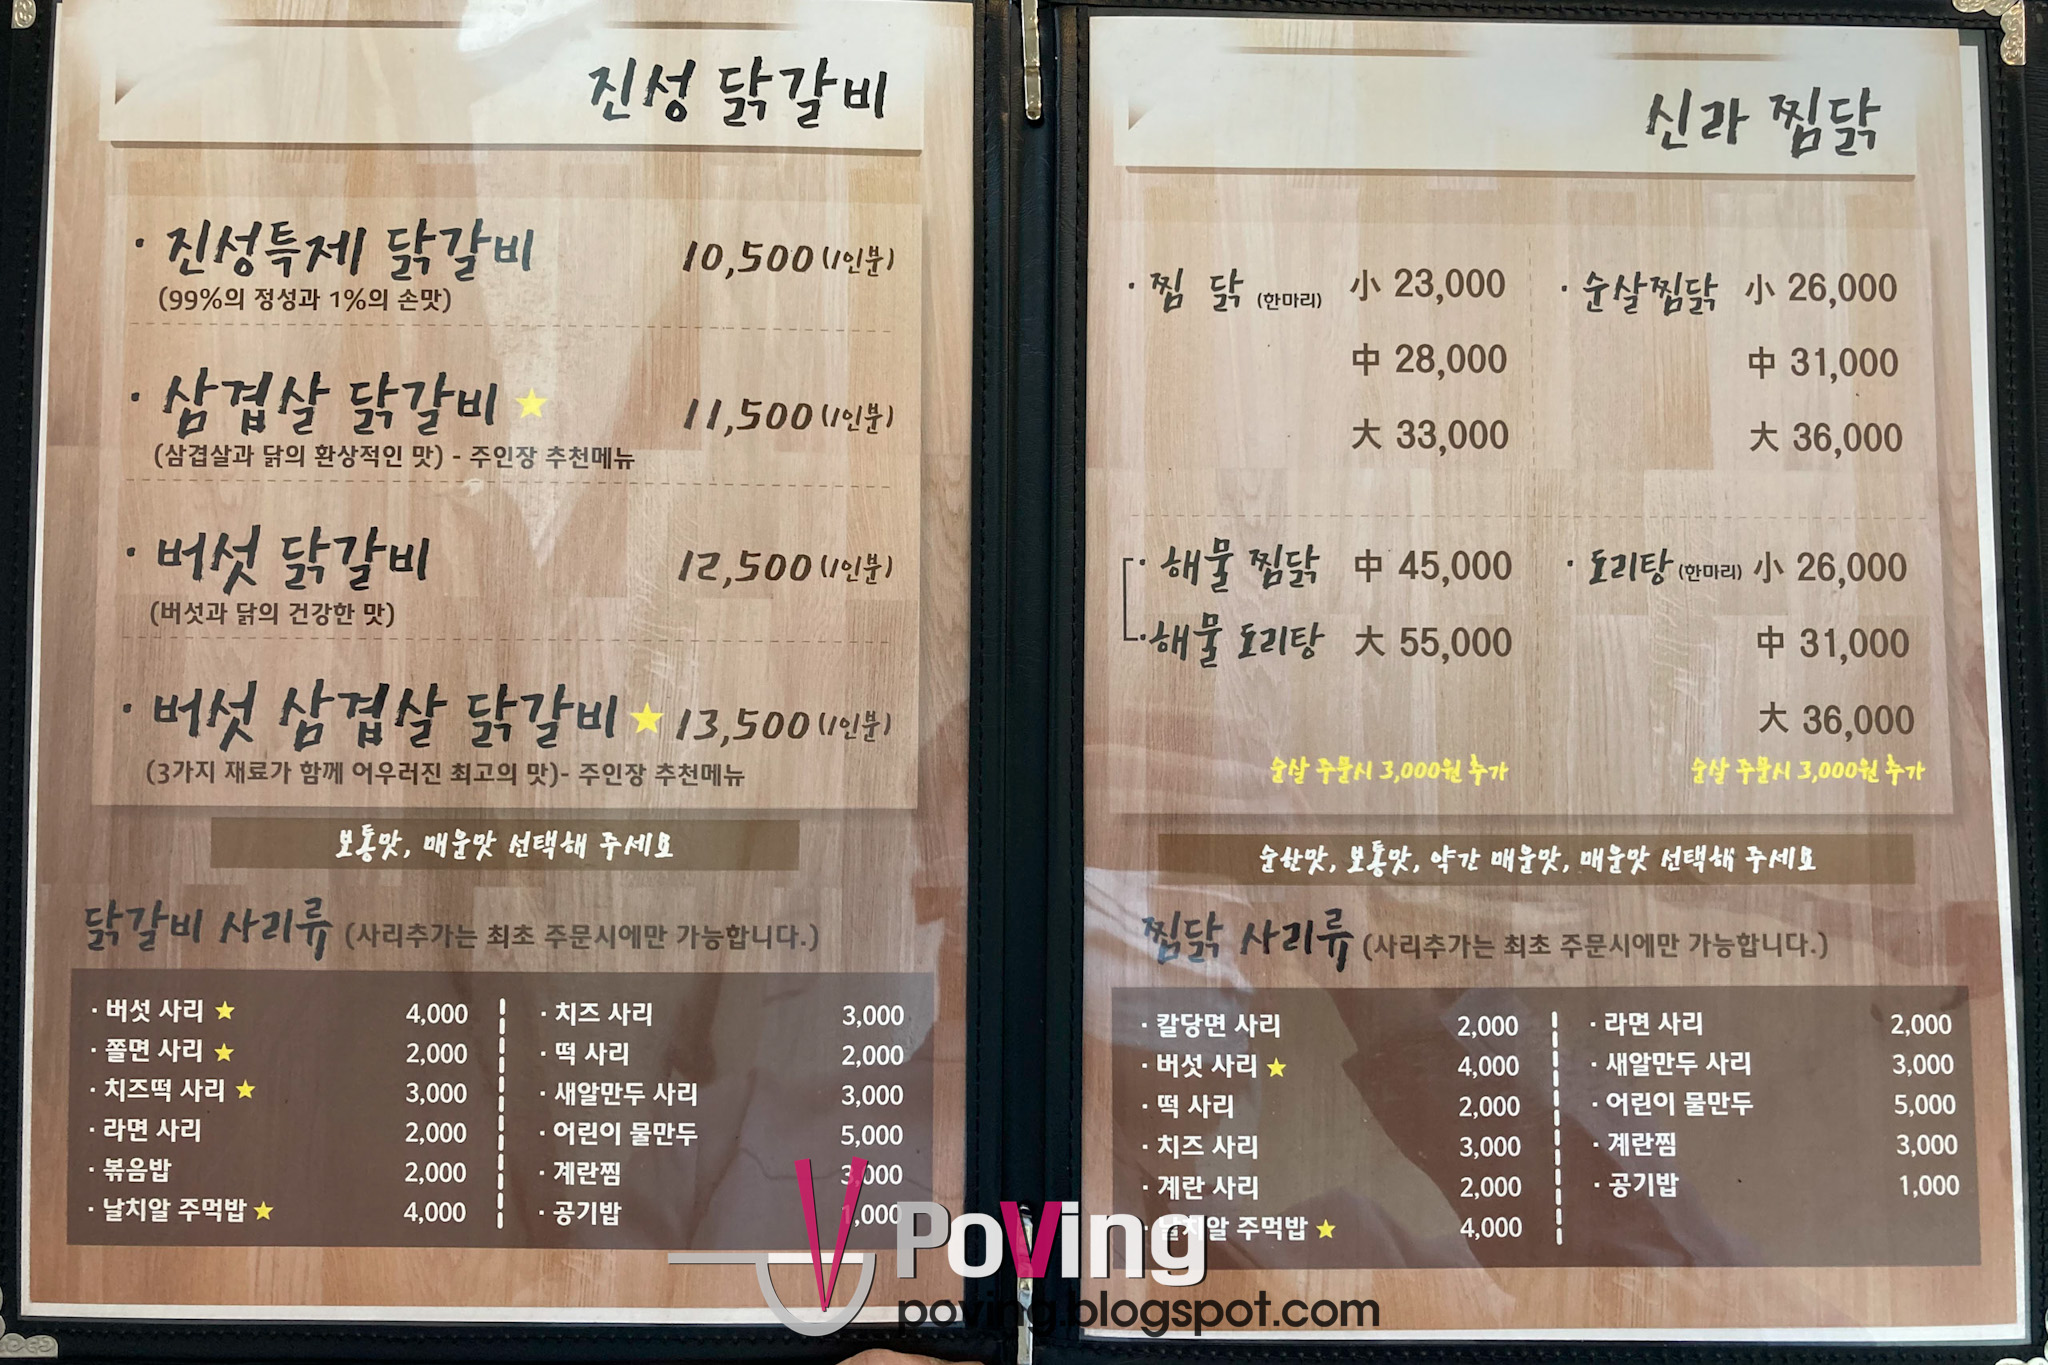 진성 닭갈비
· 진성특제 닭갈비 10,500 (1인분)
(99%의 정성과 1%의 손맛)
· 삼겹살 닭갈비 ★ 11,500 (1인분)
(삼겹살과 닭의 환상적인 맛) - 주인장 추천메뉴
· 버섯 닭갈비 12,500 (1인분)
(버섯과 닭의 건강한 맛)
· 버섯 삼겹살 닭갈비 ★ 13,500 (1인분)
(3가지 재료가 함께 어우러진 최고의 맛)- 주인장 추천메뉴
보통맛, 매운맛 선택해 주세요
닭갈비 사리류 (사리추가는 최초 주문시에만 가능합니다.)
· 버섯 사리 ★ 4,000
· 쫄면 사리 ★ 2,000
· 치즈떡 사리 ★ 3,000
· 라면 사리 2,000
· 볶음밥 2,000
· 날치알 주먹밥 ★ 4,000
· 치즈 사리 3,000
· 떡 사리 2,000
· 새알만두 사리 3,000
· 어린이 물만두 5,000
· 계란찜 3,000
· 공기밥 1,000
신라 찜닭
· 찜 닭 (한마리) 小 23,000
中 28,000
大 33,000
· 순살찜닭 小 26,000
中 31,000
大 36,000
· 해물 찜닭 中 45,000
· 해물 도리탕 大 55,000
순살 주문시 3,000원 추가
· 도리탕 (한마리) 小 26,000
中 31,000
大 36,000
순살 주문시 3,000원 추가
순한맛, 보통맛, 약간 매운맛, 매운맛 선택해 주세요
찜닭 사리류 (사리추가는 최초 주문시에만 가능합니다.)
· 칼당면 사리 2,000
· 버섯 사리 ★ 4,000
· 떡 사리 2,000
· 치즈 사리 3,000
· 계란 사리 2,000
· 날치알 주먹밥 ★ 4,000
· 라면 사리 2,000
· 새알만두 사리 3,000
· 어린이 물만두 5,000
· 계란찜 3,000
· 공기밥 1,000
PoVing
poving.blogspot.com